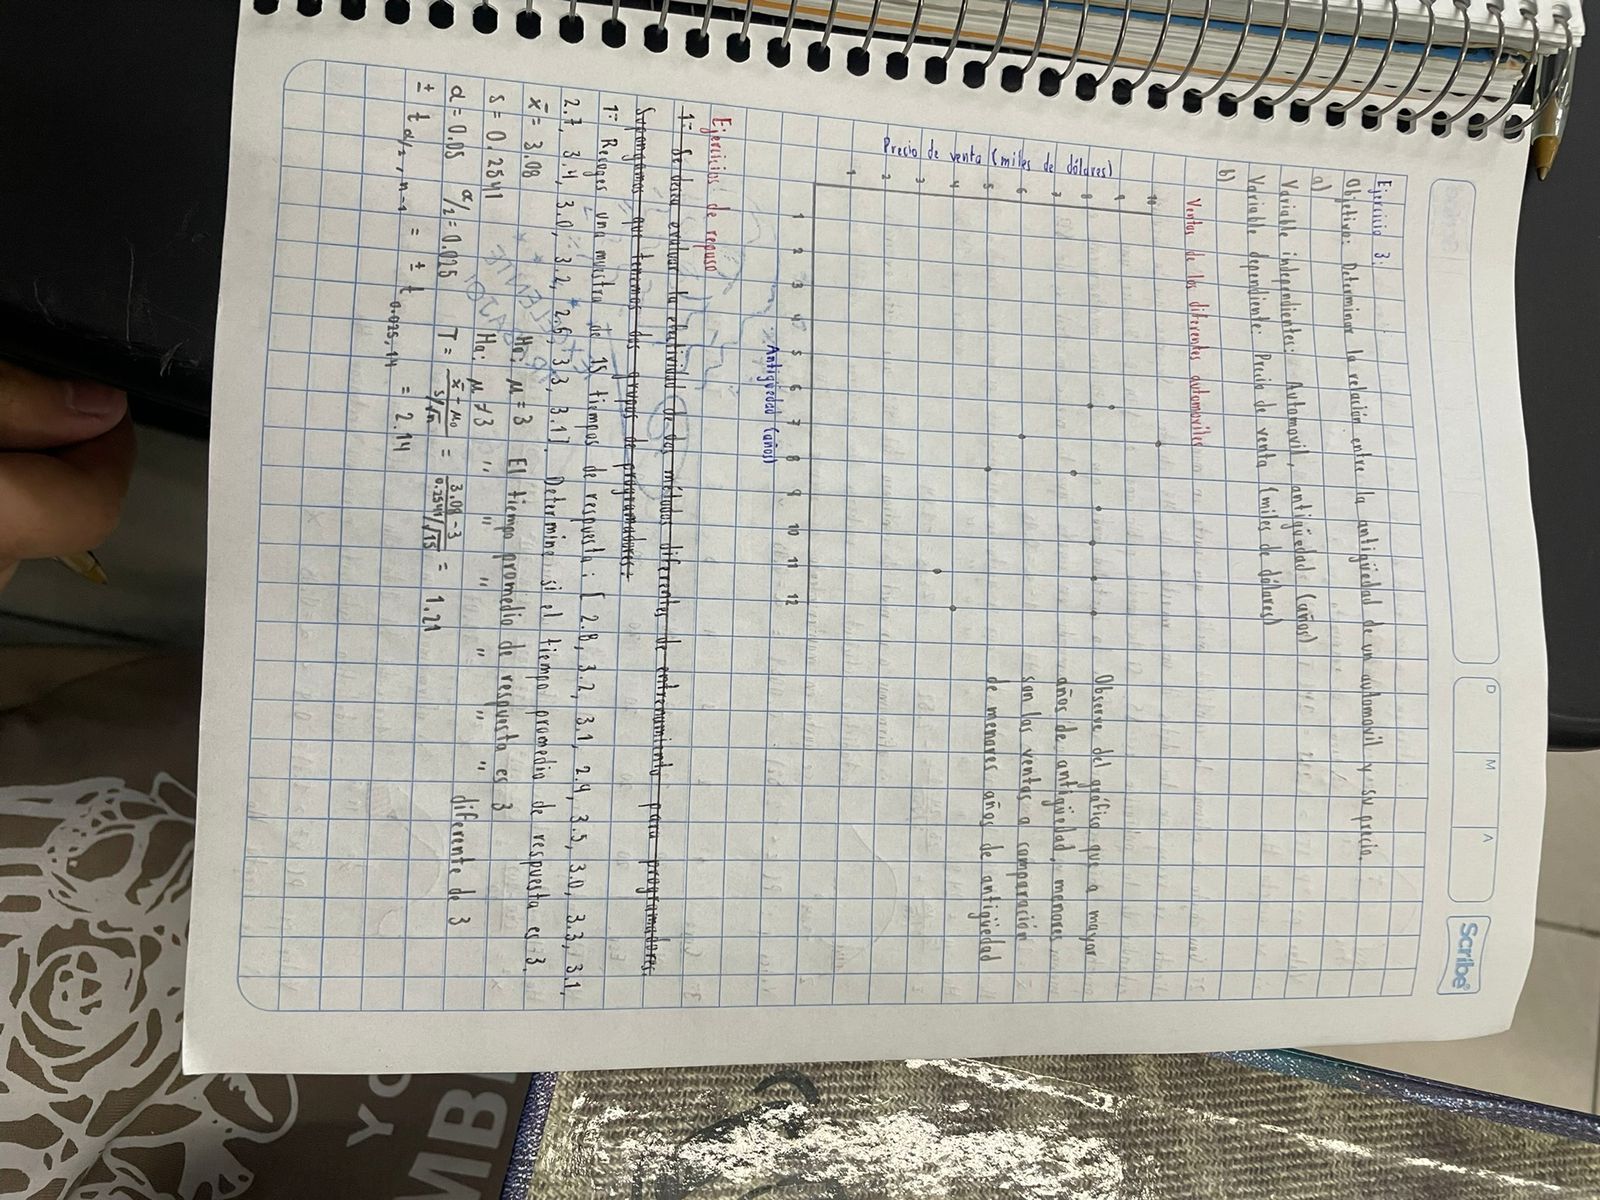 D M A
Scribe
Ejercicio 3:
Objetivo: Determinar la relación entre la antigüedad de un automovil y su precio.
a)
Variable independientes: Automovil, antigüedad (años)
Variable dependiente: Precio de venta (miles de dólares)
b)
Ventas de los diferentes automoviles
Precio de venta (miles de dólares)
10
9
8
7
6
5
4
3
2
1
1 2 3 4 5 6 7 8 9 10 11 12
Antigüedad (años)
Observe del gráfico que a mayor
años de antigüedad, menores
son las ventas a comparación
de menores años de antigüedad
Ejercicios de repaso
1- Se desea evaluar la efectividad de dos métodos diferentes de entrenamiento para programadores.
Supongamos que tenemos dos grupos de programadores:
1- Recoges una muestra de 15 tiempos de respuesta: [ 2.8, 3.2, 3.1, 2.9, 3.5, 3.0, 3.3, 3.1,
2.7, 3.4, 3.0, 3.2, 2.6, 3.3, 3.1]. Determine si el tiempo promedio de respuesta es 3.
x̄ = 3.08 Ho: μ = 3 El tiempo promedio de respuesta es 3
s = 0.2541 Ha: μ ≠ 3 " " " " " " diferente de 3
α = 0.05 α/2 = 0.025 T = x̄ - μ₀ / s/√n = 3.08 - 3 / 0.2541/√15 = 1.21
± t α/2, n-1 = ± t 0.025, 14 = 2.14